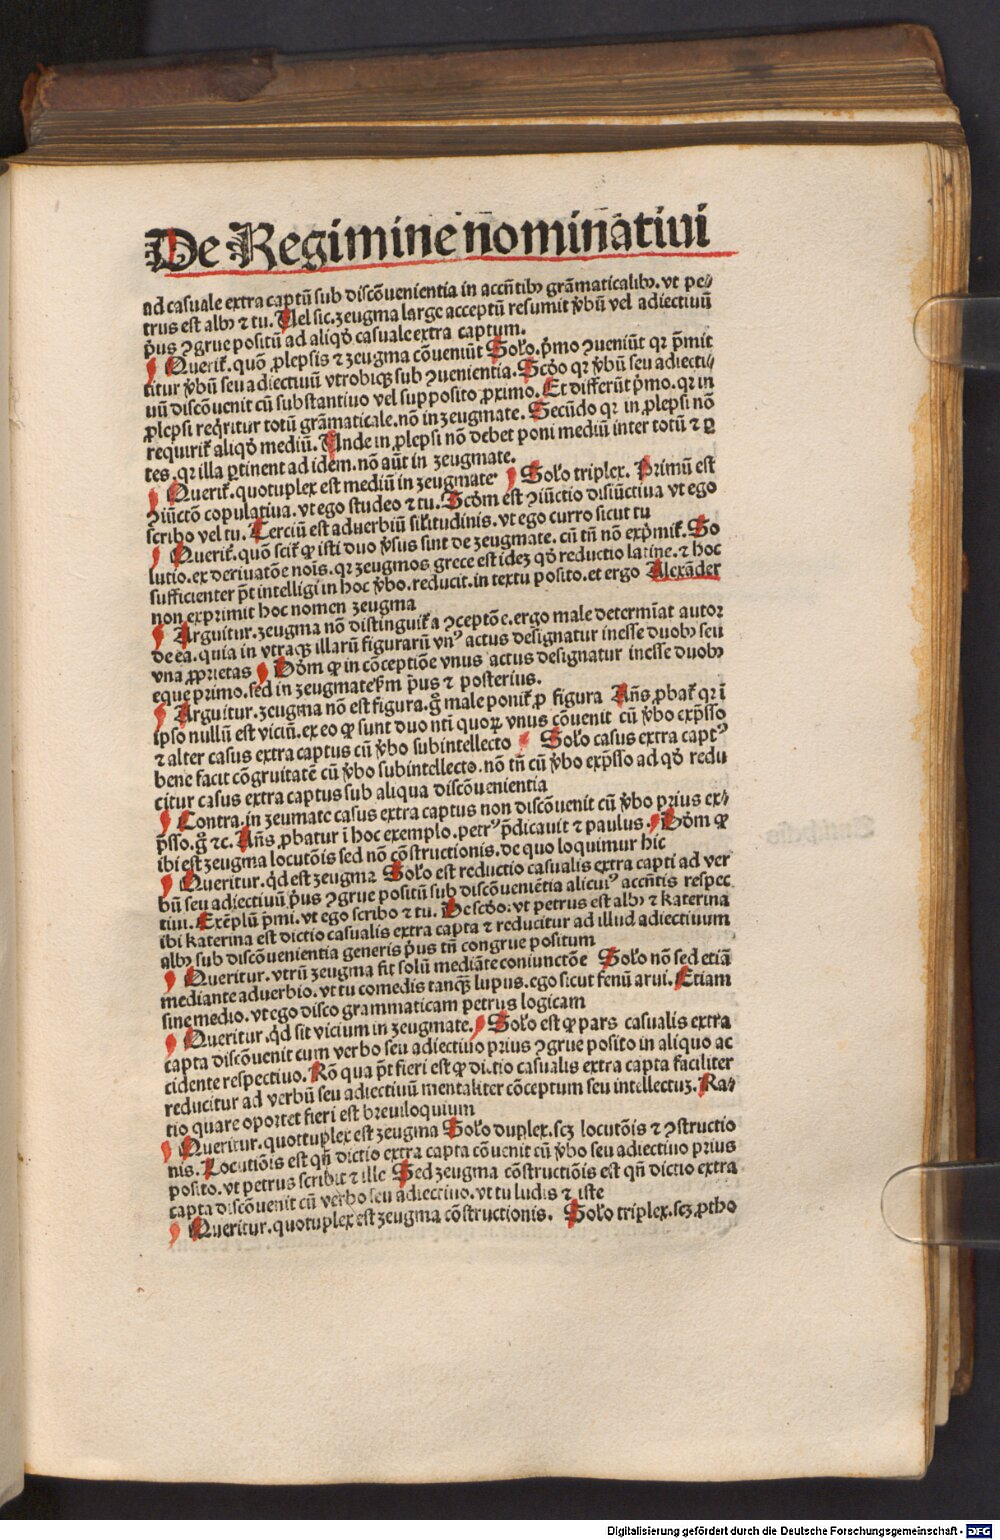 De Regimine nominatiui
ad casuale extra captū sub discōuenientia in accn̄tibꝰ grāmaticalibꝰ. vt pe⸗
trus est albꝰ ⁊ tu. Uel sic. zeugma large acceptū resumit v̓bū vel adiectiuū
p̓us ꝯgrue positū ad aliqd̓ casuale extra captum.
Querit̉. quō ꝓlepsis ⁊ zeugma cōueniūt Solo. p̓mo ꝯueniūt qꝛ p̄mit
titur v̓bū seu adiectiuū vtrobiqꝫ sub ꝯuenientia. Scd̓o qꝛ v̓bū seu adiecti⸗
uū discōuenit cū substantiuo vel supposito ꝓximo. Et differūt p̓mo. qꝛ in
ꝓlepsi req̓ritur totū grāmaticale. nō in zeugmate. Secūdo qꝛ in ꝓlepsi nō
requirit̉ aliqd̓ mediū. Unde in ꝓlepsi nō debet poni mediū inter totū ⁊ ꝑ
tes. qꝛ illa ꝑtinent ad idem. nō aūt in zeugmate.
Querit̉. quotuplex est mediū in zeugmate Solo triplex. Primū est
ꝯiūctō copulatiua. vt ego studeo ⁊ tu. Scd̓m est ꝯiūctio disiūctiua vt ego
scribo vel tu. Terciū est aduerbiū sil̓itudinis. vt ego curro sicut tu
Querit̉. quō scit̉ ꝙ isti duo v̓sus sint de zeugmate. cū tn̄ nō exp̓mit̉. So
lutio. ex deriuatōe nois̄. qꝛ zeugmos grece est idez qd̓ reductio latine. ⁊ hoc
sufficienter p̄t intelligi in hoc v̓bo. reducit. in textu posito. et ergo Alexāder
non exprimit hoc nomen zeugma
Arguitur. zeugma nō distinguit̉ a ꝯceptōe. ergo male determīat autor
de ea. quia in vtraqꝫ illarū figurarū vnꝰ actus designatur inesse duobꝰ seu
vna ꝓprietas Dd̓m ꝙ in cōceptiōe vnus actus designatur inesse duobꝰ
eque primo. sed in zeugmate s̓m p̄us ⁊ posterius.
Arguitur. zeugma nō est figura. g̊ male ponit̉ ꝓ figura An̄s ꝓbat̉ qꝛ ī
ipso nullū est viciū. ex eo ꝙ sunt duo nt̄i quoꝝ vnus cōuenit cū v̓bo exp̄sso
⁊ alter casus extra captus cū v̓bo subintellecto Solo casus extra captꝰ
bene facit cōgruitatē cū v̓bo subintellecto. nō tn̄ cū v̓bo exp̄sso ad qd̓ redu
citur casus extra captus sub aliqua discōuenientia
Contra. in zeumate casus extra captus non discōuenit cū v̓bo prius ex⸗
p̄sso. g̊ ⁊c. An̄s ꝓbatur ī hoc exemplo. petrꝰ p̄dicauit ⁊ paulus. Dd̓m ꝙ
ibi est zeugma locutōis sed nō cōstructionis. de quo loquimur hic
Queritur. qd̓ est zeugma Solo est reductio casualis extra capti ad ver
bū seu adiectiuū p̓us ꝯgrue positū sub discōueniētia alicuiꝰ accn̄tis respec
tiui. Exēplū p̄mi. vt ego scribo ⁊ tu. De scd̓o. vt petrus est albꝰ ⁊ katerina
ibi katerina est dictio casualis extra capta ⁊ reducitur ad illud adiectiuum
albꝰ sub discōuenientia generis p̓us tn̄ congrue positum
Queritur. vtrū zeugma fit solū mediāte coniunctōe Solo nō sed etiā
mediante aduerbio. vt tu comedis tanqꝫ lupus. ego sicut fenū arui. Etiam
sine medio. vt ego disco grammaticam petrus logicam
Queritur. qd̓ sit vicium in zeugmate. Solo est ꝙ pars casualis extra
capta discōuenit cum verbo seu adiectiuo prius ꝯgrue posito in aliquo ac
cidente respectiuo. Rō qua p̄t fieri est ꝙ dictio casualis extra capta faciliter
reducitur ad verbū seu adiectiuū mentaliter cōceptum seu intellectuꝫ. Ra⸗
tio quare oportet fieri est breuiloquium
Queritur. quottuplex est zeugma Solo duplex. scꝫ locutōis ⁊ ꝯstructio
nis. Locutiōis est qn̄ dictio extra capta cōuenit cū v̓bo seu adiectiuo prius
posito. vt petrus scribit ⁊ ille Sed zeugma cōstructiōis est qn̄ dictio extra
capta discōuenit cū verbo seu adiectiuo. vt tu ludis ⁊ iste
Queritur. quotuplex est zeugma cōstructionis. Solo triplex. scꝫ ꝓtho
Digitalisierung gefördert durch die Deutsche Forschungsgemeinschaft - DFG